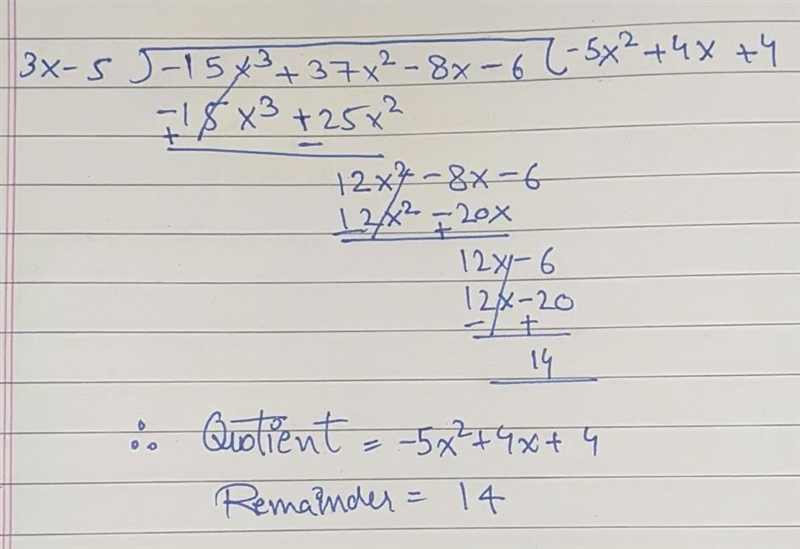 3x-5 ) -15x³ + 37x² - 8x - 6 ( -5x² + 4x + 4
-15x³ + 25x²
+ -
12x² - 8x - 6
12x² - 20x
- +
12x - 6
12x - 20
- +
14
∴ Quotient = -5x² + 4x + 4
Remainder = 14